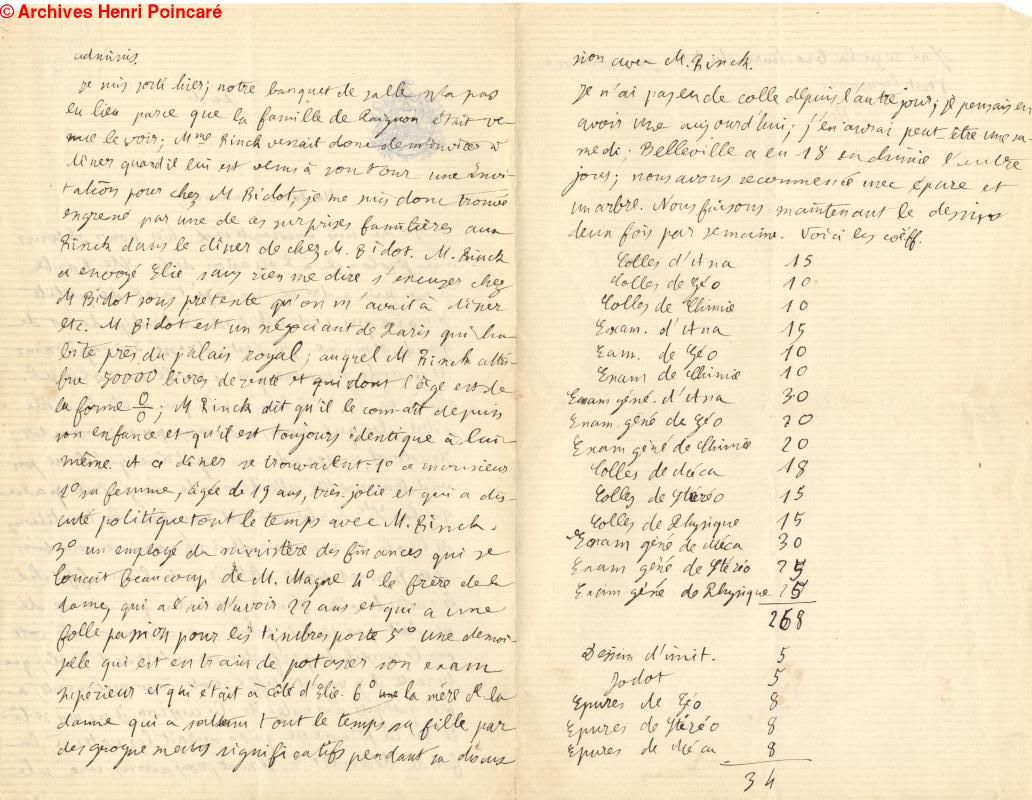 © Archives Henri Poincaré
admis.
Je suis sorti hier; notre banquet de salle n'a pas
eu lieu parce que la famille de Zaignon était ve-
nue le voir; Mme Rinck venait donc de m'inviter à
dîner quand il lui est venu à son tour une invi-
tation pour chez M Bidot, je me suis donc trouvé
engrené par une de ces surprises familières aux
Rinck dans le dîner de chez M. Bidot. M. Rinck
a envoyé Elie sans rien me dire s'excuser chez
M Bidot sous prétexte qu'on m'avait à dîner
etc. M Bidot est un négociant de Paris qui ha-
bite près du palais royal; auquel M Rinck attri-
bue 50000 livres de rente et qui dont l'âge est de
la forme 0/0; M Rinck dit qu'il le connait depuis
son enfance et qu'il est toujours identique à lui
même. A ce dîner se trouvaient 1° ce monsieur
2° sa femme, âgée de 19 ans, très jolie et qui a dis-
cuté politique tout le temps avec M. Rinck.
3° un employé du ministère des finances qui se
louait beaucoup de M. Magne 4° le frère de la
dame, qui a l'air d'avoir 22 ans et qui a une
folle passion pour les timbres poste 5° une demoi-
selle qui est en train de potasser son exam
supérieur et qui était à côté d'Elie. 6° la mère de la
dame qui a tout le temps sa fille par
des grognements significatifs pendant sa discus
sion avec M. Rinck.
Je n'ai pas eu de colle depuis l'autre jour; je pensais en
avoir une aujourd'hui; j'en aurai peut être une sa-
medi; Belleville a eu 18 en chimie l'autre
jour; nous avons recommencé avec épure et
un arbre. Nous faisons maintenant le dessin
deux fois par semaine. Voici les coëff.
Colles d'Ana 15
Colles de Géo 10
Colles de Chimie 10
Exam. d'Ana 15
Exam. de Géo 10
Exam de Chimie 10
Exam géné. d'Ana 30
Exam. géné de Géo 20
Exam géné de Chimie 20
Colles de Méca 18
Colles de Stéréo 15
Colles de Physique 15
Exam géné de Méca 30
Exam géné de Stéréo 25
Exam géné de Physique 25
268
Dessin d'imit. 5
Jodot 5
Epures de Géo 8
Epures de Stéréo 8
Epures de Méca 8
34